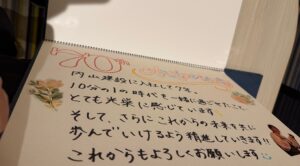 70th
内山建設に入社して7年。
10分の1の時代を一緒に過ごせたこと、
とても光栄に感じています。
そして、さらにこれからの未来を共に
歩んでいけるよう精進していきます!!
これからもよろしくお願いします